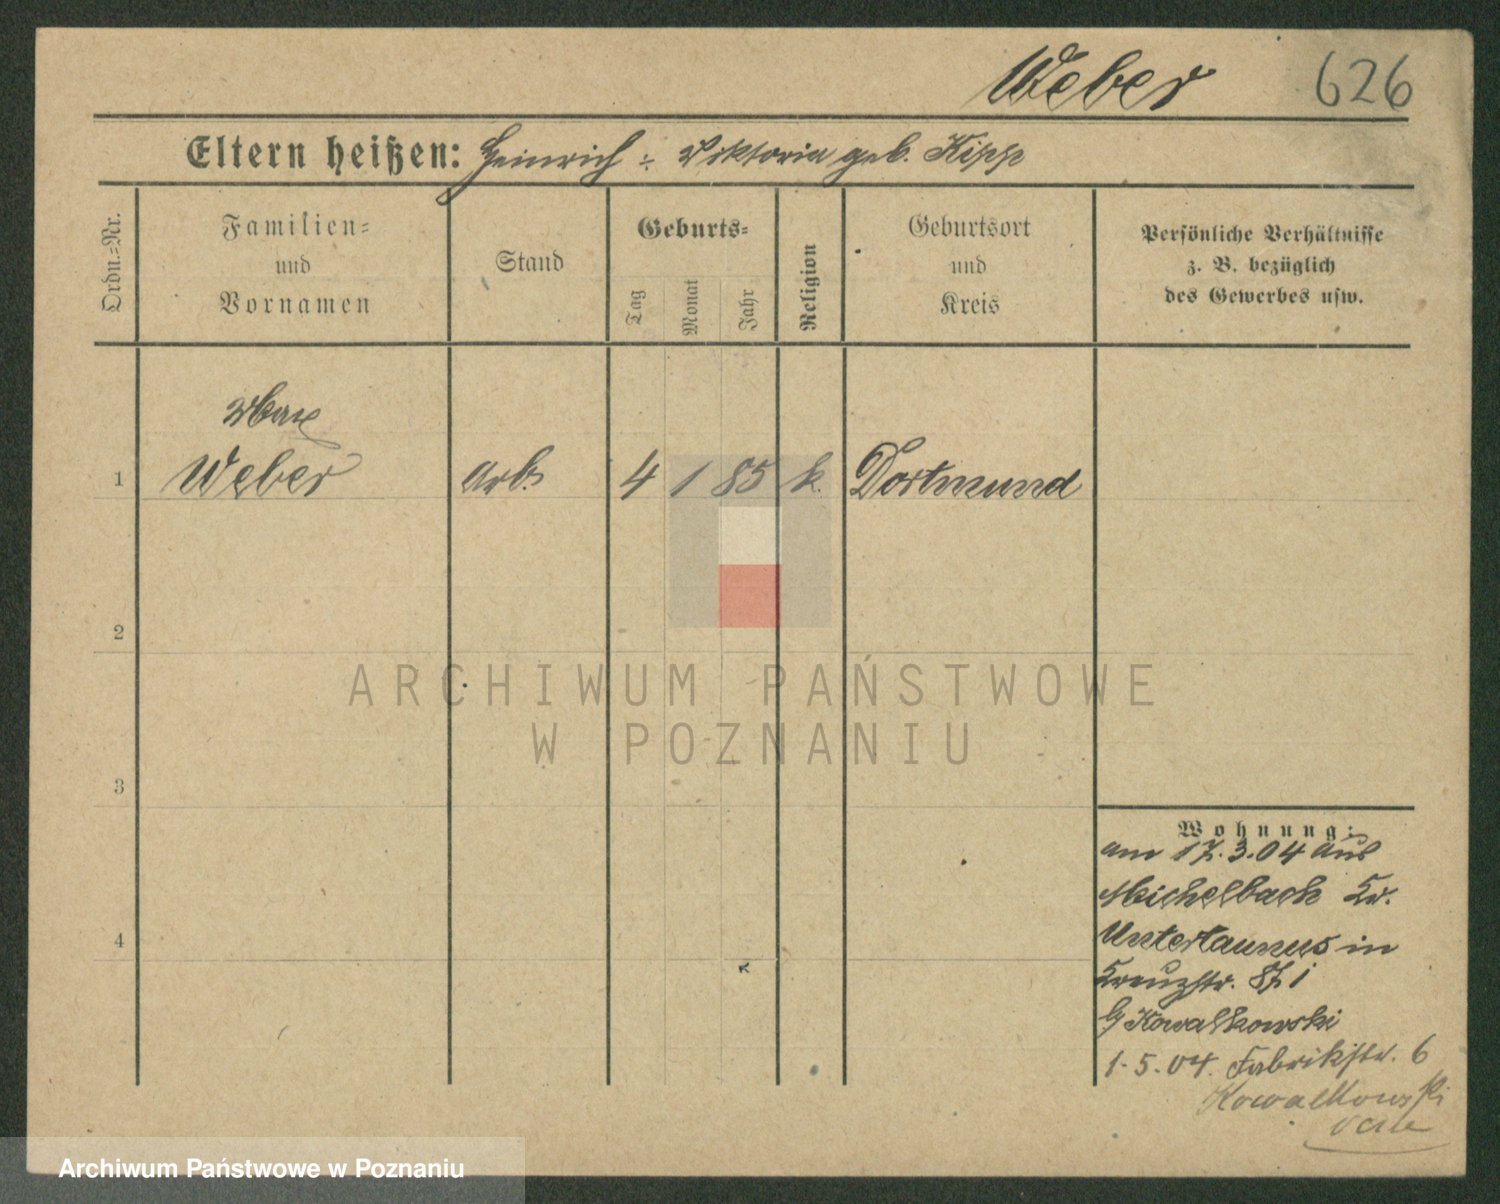 Weber 626
Eltern heißen: Heinrich ÷ Viktoria geb. Kipp
Ordn.=Nr.
Familien=
und
Vornamen
Stand
Geburts=
Tag
Monat
Jahr
Religion
Geburtsort
und
Kreis
Persönliche Verhältnisse
z. B. bezüglich
des Gewerbes usw.
Max
1 Weber Arb. 4 1 85 k. Dortmund
2
3
4
Wohnung:
am 17.3.04 aus
Michelbach Kr.
Untertaunus in
Kreuzstr. 87 i
b/ Kowalkowski
1.5.04. Fabrikstr. 6
Kowalkowski
ARCHIWUM PAŃSTWOWE
W POZNANIU
Archiwum Państwowe w Poznaniu